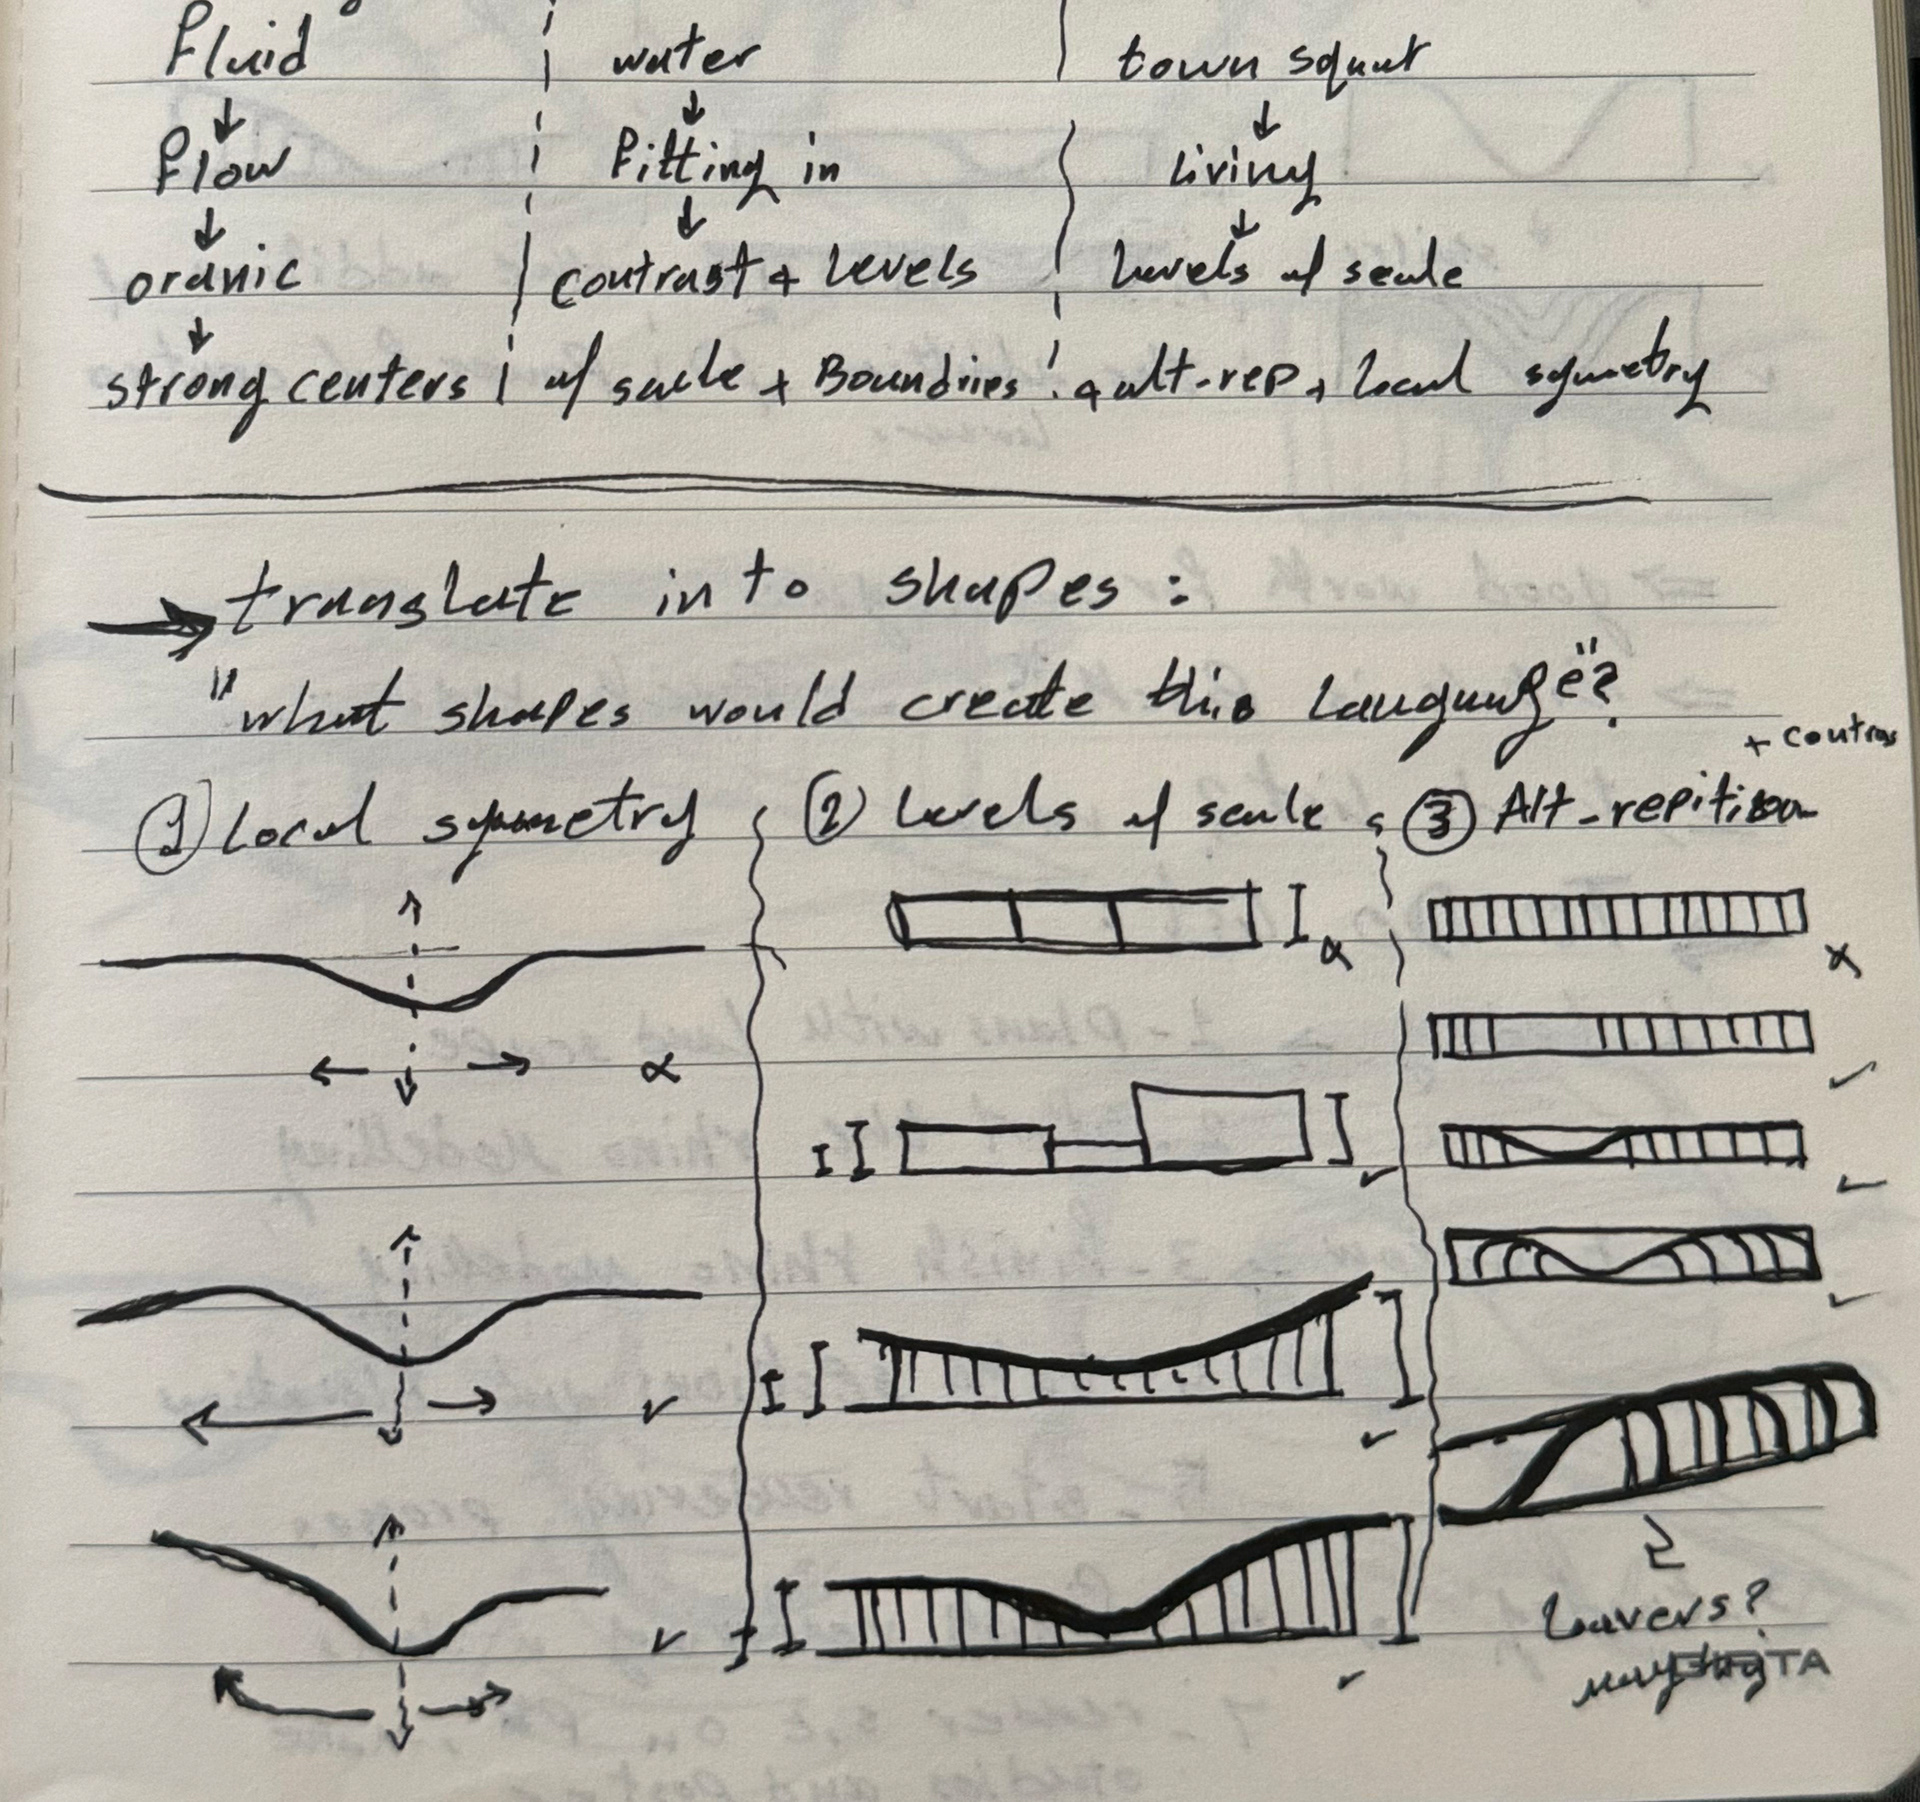 Fluid
water
town squar
Flow
Fitting in
Living
oranic
contrast + Levels
Levels of scale
strong centers
of scale + Boundries
+ alt-rep + local symetry
translate into shapes:
"what shapes would create this language"?
+ contras
① Local symmetry
② Levels of scale
③ Alt-repitition
Lavers?
TA